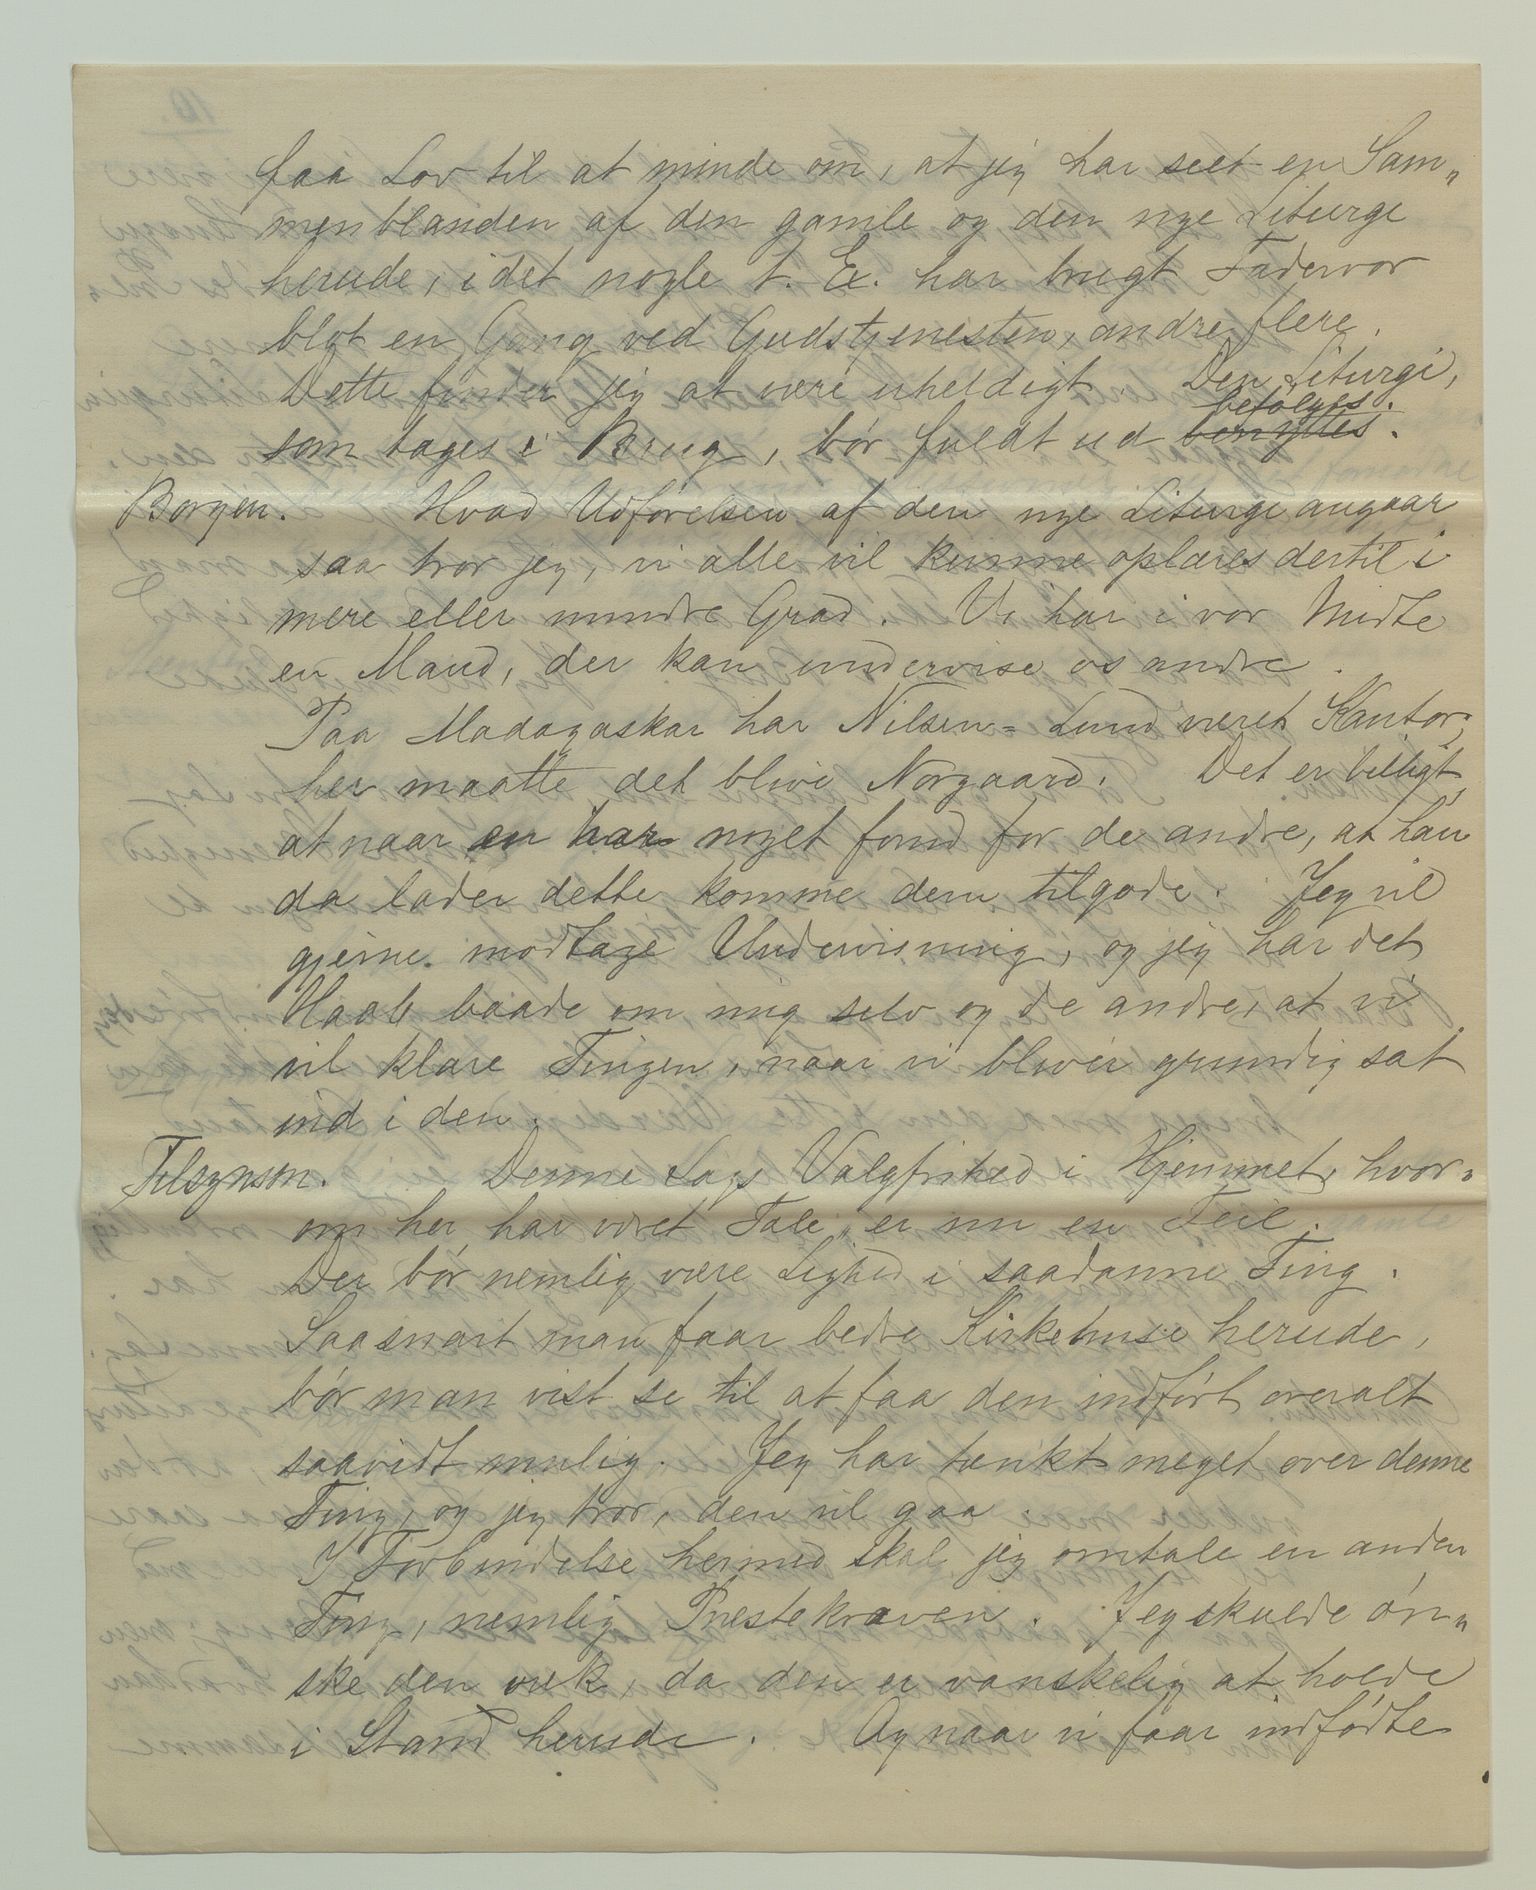 faa Lov til at minde om, at jeg har seet en Sam„
menblanden af den gamle og den nye Liturge
herude, idet nogle t. Ex. har brugt Fadervor
blot en Gang ved Gudstjenesten, andre flere.
Dette finder jeg at være uheldigt. Den Liturgi,
befølges.
som tages i Brug, bør fuldt ud benyttes.
Borgen. Hvad Udførelsen af den nye Liturge angaar
saa tror jeg, vi alle vil kunne oplæres dertil i
mere eller mindre Grad. Vi har i vor Midte
en Mand, der kan undervise os andre.
Paa Madagaskar har Nilsen-Lund været Kantor;
her maatte det blive Norgaard. Det er billigt,
at naar en har noget forud for de andre, at han
da lader dette komme dem tilgode. Jeg vil
gjerne modtage Undervisning, og jeg har det
Haab baade om mig selv og de andre, at vi
vil klare Tingen, naar vi bliver grundig sat
ind i den.
Tilsynsm. Denne Sags Valgfrihed i Hjemmet, hvor„
om her har været Tale, er nu en Feil.
Der bør nemlig være Lighed i saadanne Ting.
Saasnart man faar bedre Kirkehuse herude,
bør man vist se til at faa den indført overalt
saavidt mulig. Jeg har tænkt meget over denne
Ting, og jeg tror, den vil gaa.
I Forbindelse hermed skal jeg omtale en anden
Ting, nemlig Prestekraven. Jeg skulde øn„
ske den væk, da den er vanskelig at holde
i Stand herude. Og naar vi faar indfødte